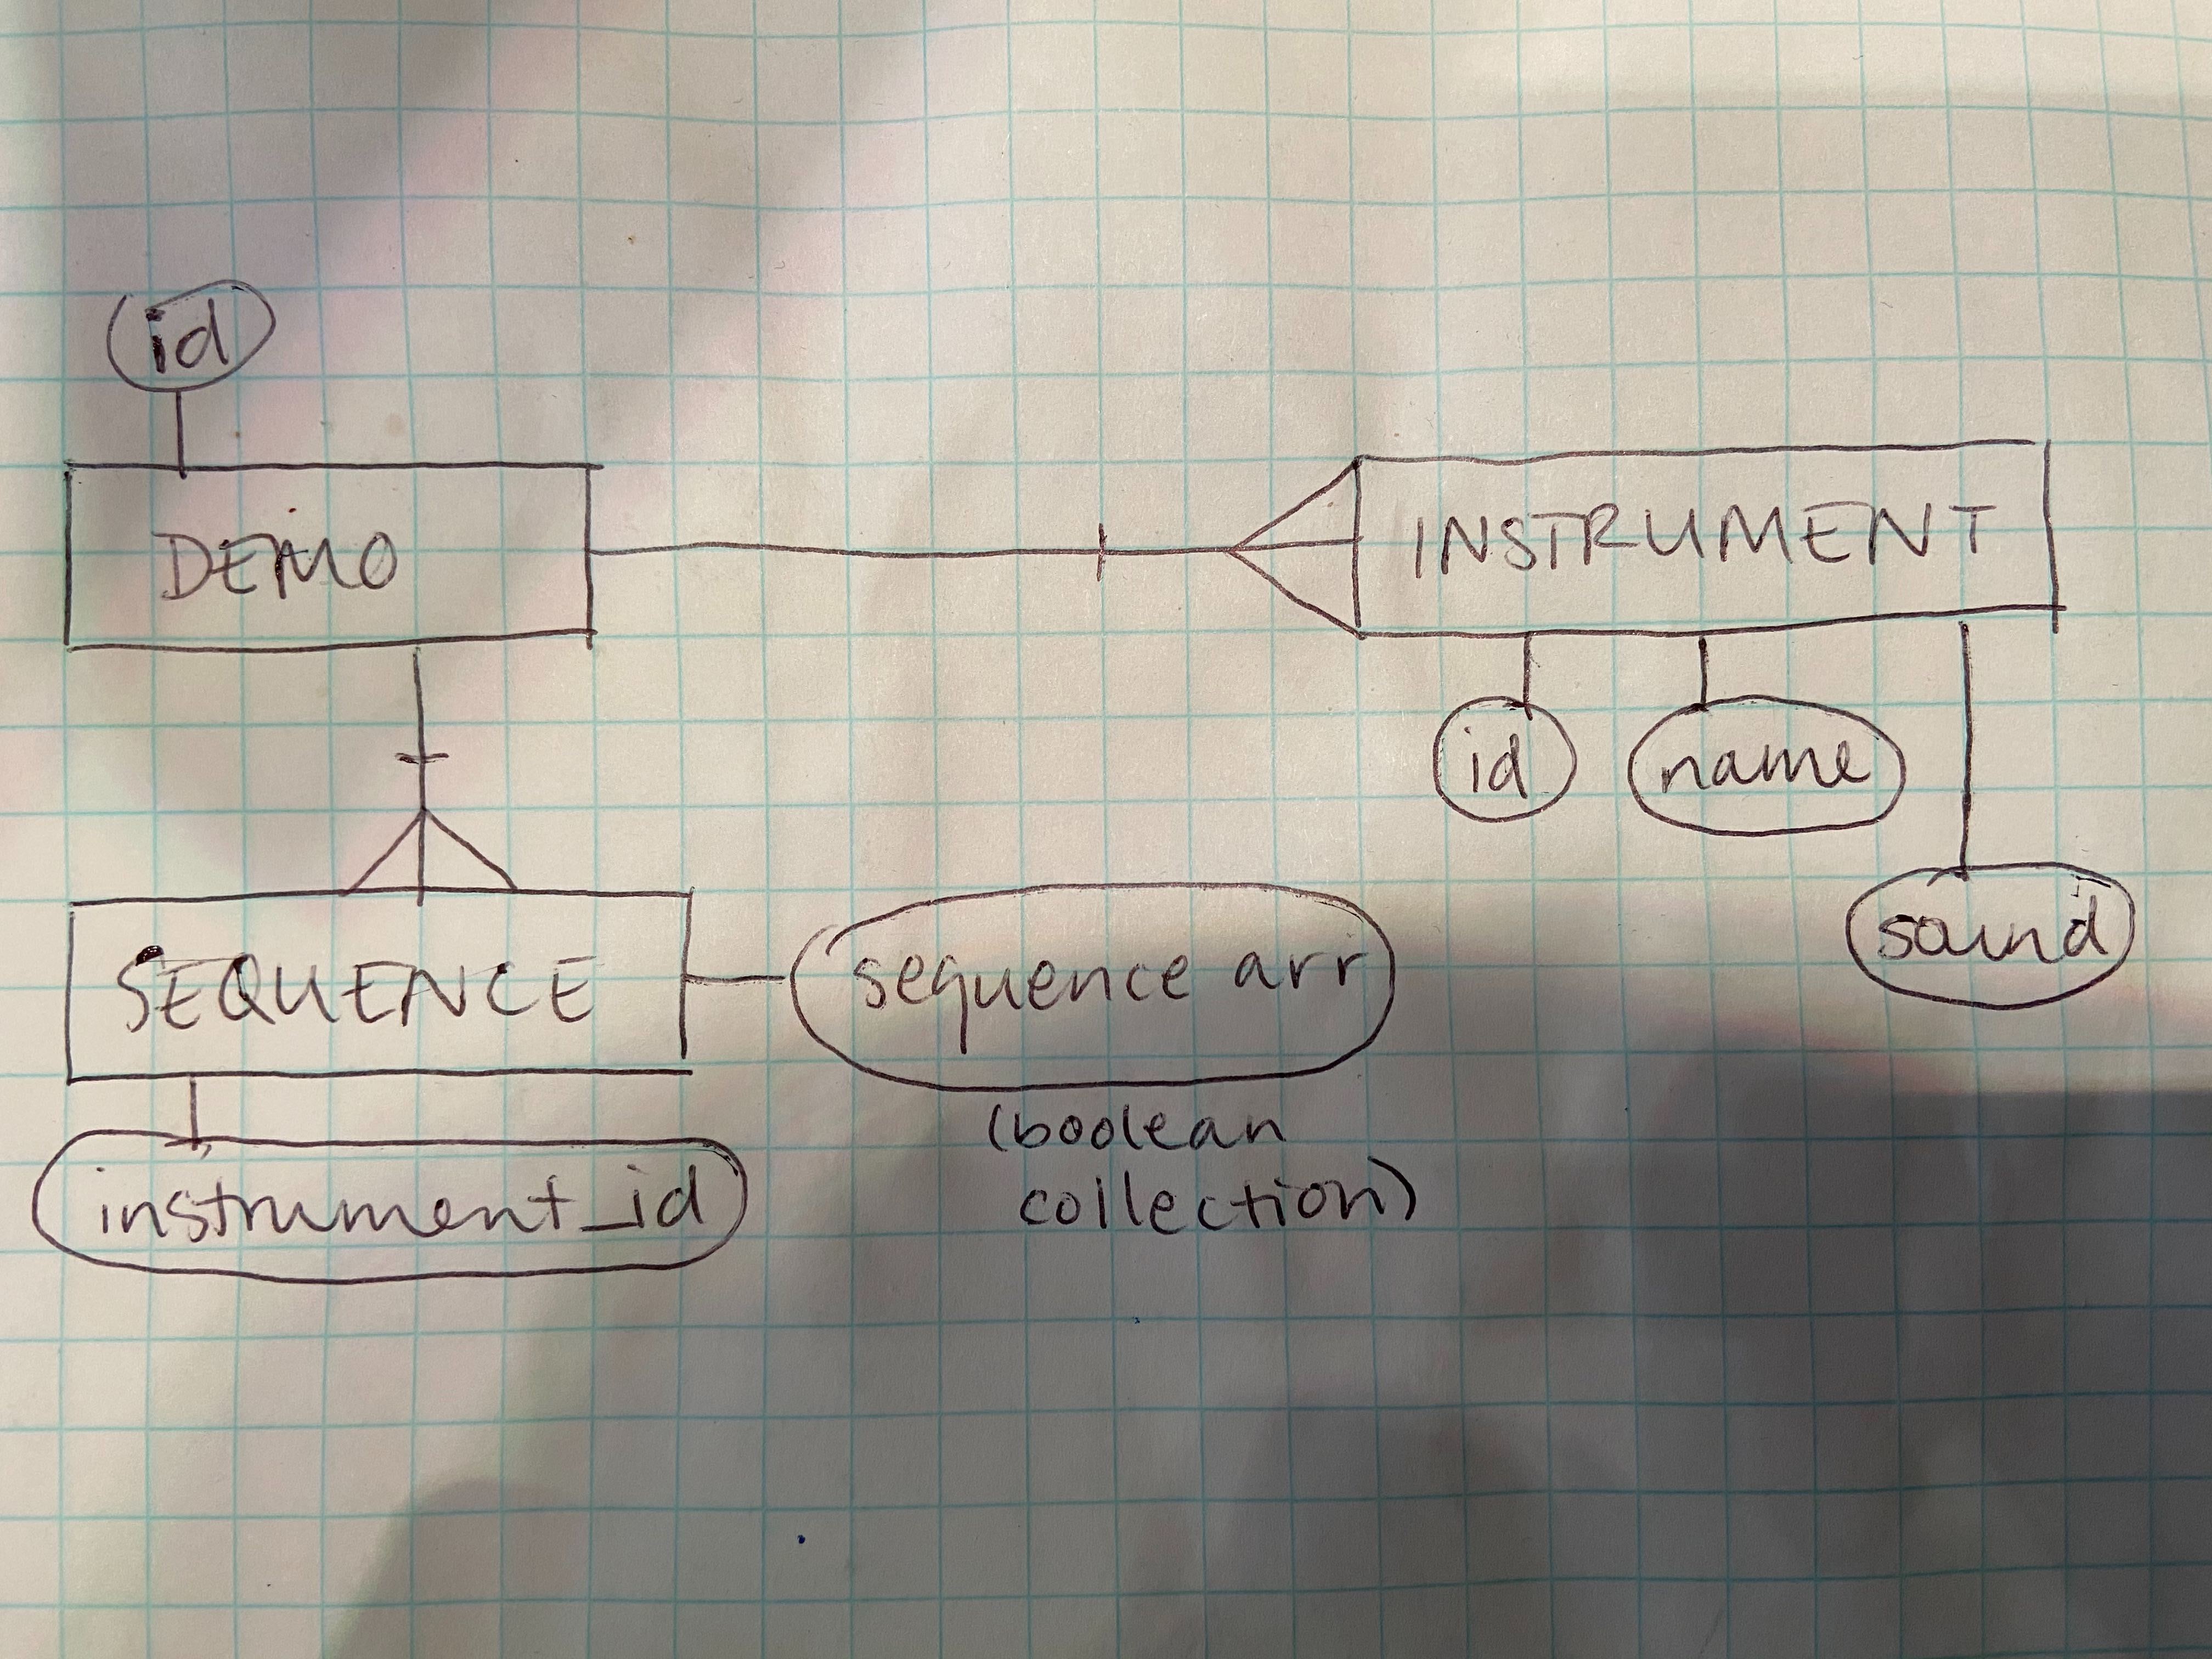 id
DEMO
INSTRUMENT
id
name
sound
SEQUENCE
sequence arr
(boolean
collection)
instrument_id